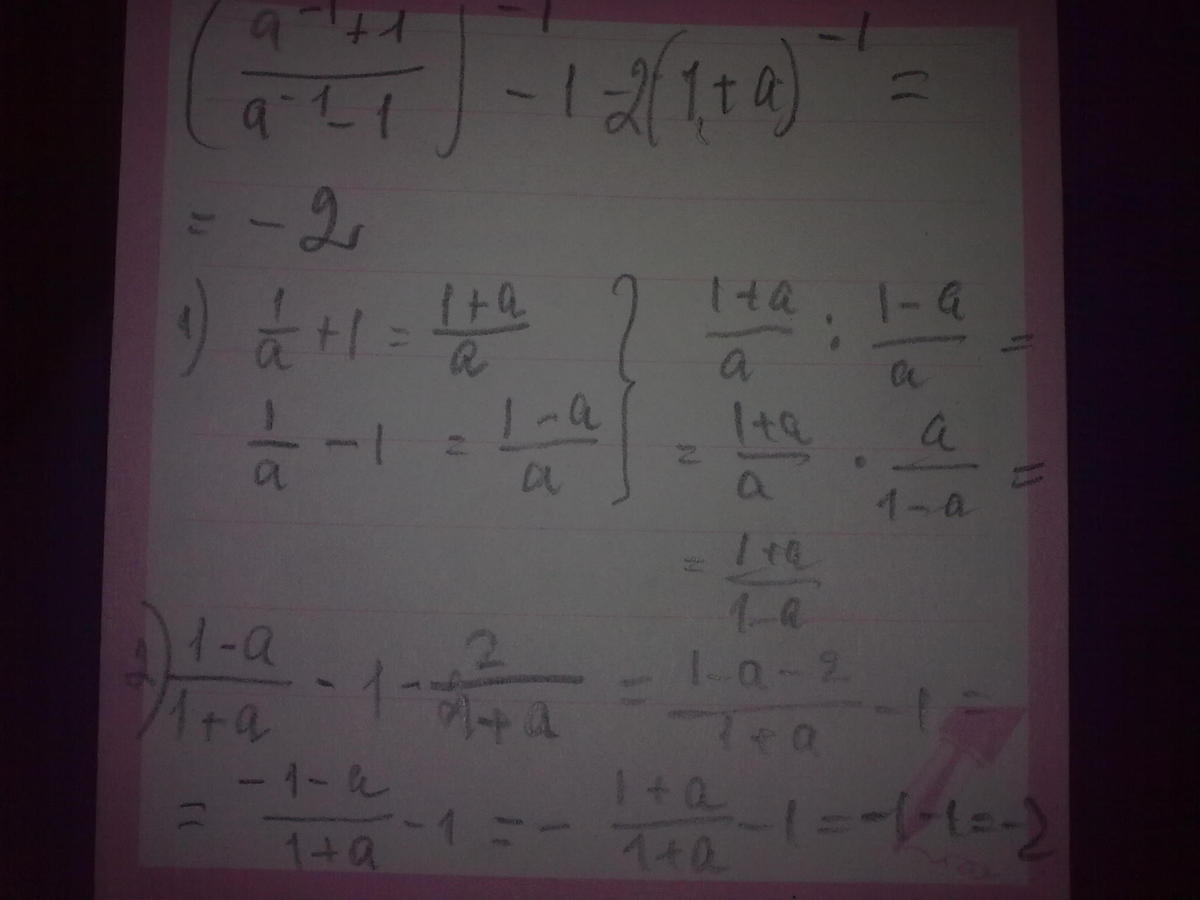 (a⁻¹+1 / a⁻¹-1)⁻¹ - 1 - 2(1+a)⁻¹ =
= -2
1) 1/a + 1 = 1+a/a } 1+a/a : 1-a/a =
1/a - 1 = 1-a/a = 1+a/a · a/1-a =
= 1+a/1-a
2) 1-a/1+a - 1 - 2/1+a = 1-a-2/1+a - 1 =
= -1-a/1+a - 1 = - 1+a/1+a - 1 = -1-1=-2